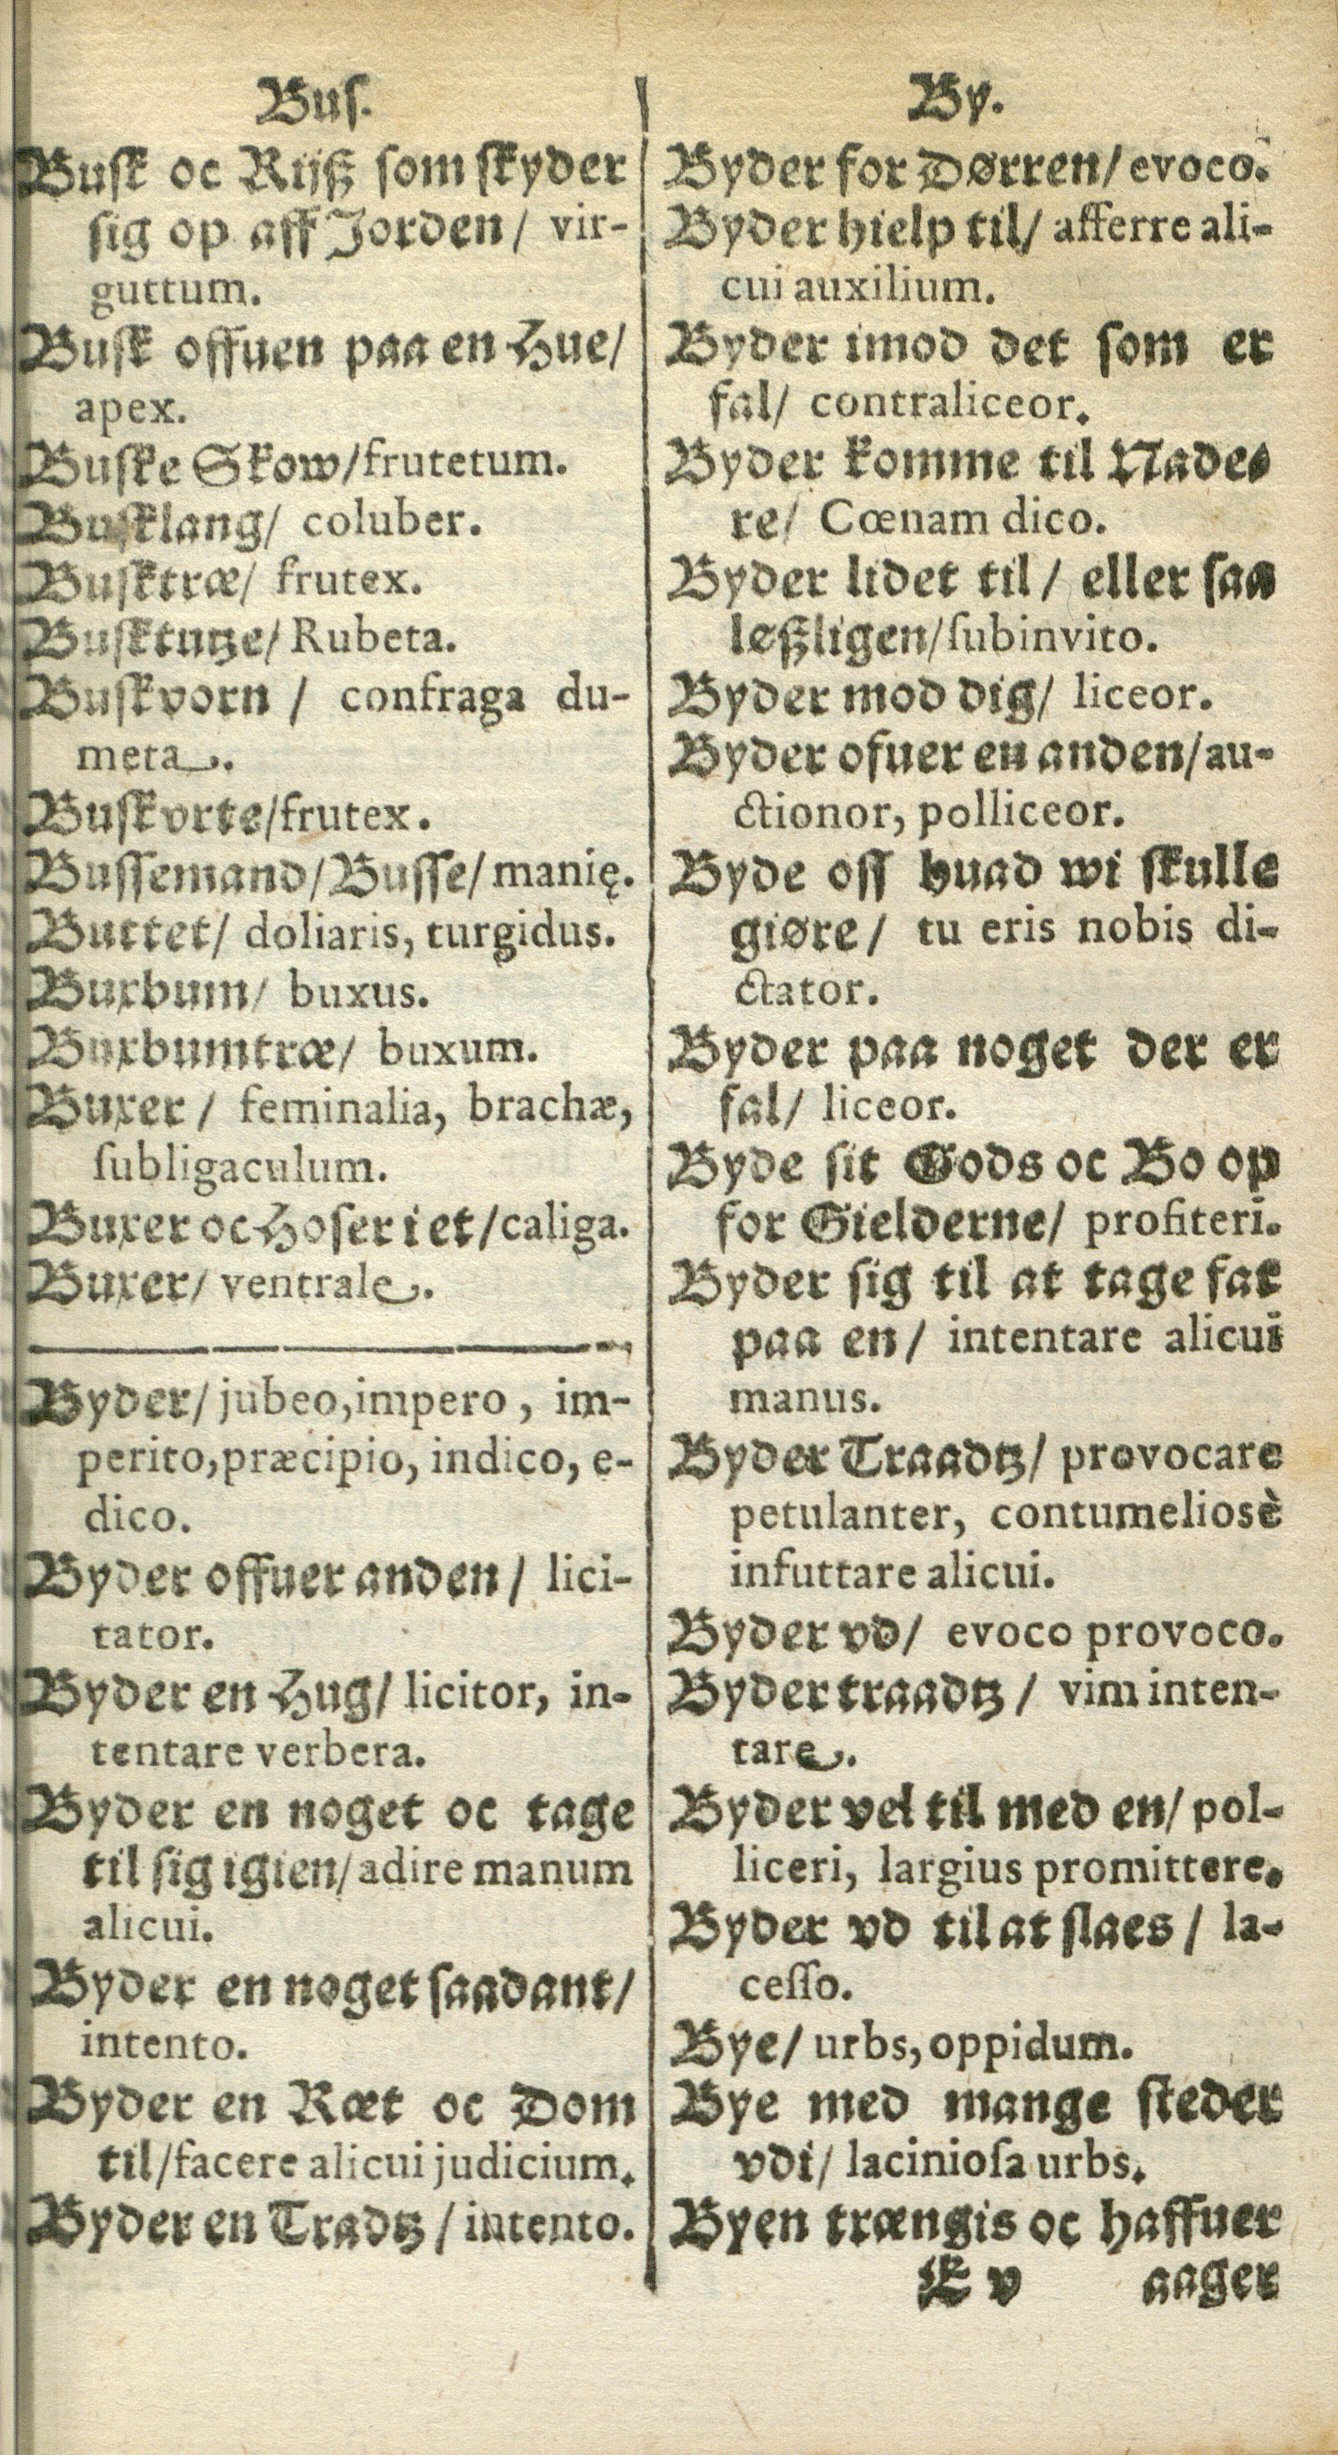 Bus.
Busk oc Rijß som skyder
sig op aff Jorden/ vir-
guttum.
Busk offuen paa en Hue/
apex.
Buske Skow/frutetum.
Busklang/ coluber.
Busktræ/ frutex.
Busktutze/ Rubeta.
Buskvorn / confraga du-
meta.
Buskvrte/frutex.
Bussemand/Busse/ manię.
Buttet/ doliaris, turgidus.
Buxbum/ buxus.
Buxbumtræ/ buxum.
Buxer / feminalia, brachæ,
ſubligaculum.
Buxer oc Hoser i et/caliga.
Buxer/ ventrale.
Byder/ jubeo,impero, im-
perito,præcipio, indico, e-
dico.
Byder offuer anden / lici-
tator.
Byder en Hug/ licitor, in-
tentare verbera.
Byder en noget oc tage
til sig igien/adire manum
alicui.
Byder en noget saadant/
intento.
Byder en Ræt oc Dom
til/facere alicui judicium.
Byder en Tradtz / intento.
By.
Byder for Dørren/evoco.
Byder hielp til/ afferre ali-
cui auxilium.
Byder imod det som er
fal/ contraliceor.
Byder komme til Nade-
re/ Cœnam dico.
Byder lidet til / eller saa
leßligen/ſubinvito.
Byder mod dig/ liceor.
Byder ofuer en anden/au-
ctionor, polliceor.
Byde oss huad wi skulle
giøre / tu eris nobis di-
ctator.
Byder paa noget der er
fal/ liceor.
Byde sit Gods oc Bo op
for Gielderne/ profiteri.
Byder sig til at tage fat
paa en / intentare alicui
manus.
Byder Traadtz/ provocare
petulanter, contumeliosè
infuttare alicui.
Byder vd/ evoco provoco.
Byder traadtz / vim inten-
tare.
Byder vel til med en/ pol-
liceri, largius promittere.
Byder vd til at slaes / la-
ceſſo.
Bye/ urbs, oppidum.
Bye med mange steder
vdi/ lacinioſa urbs.
Byen trængis oc haffuer
E v aager